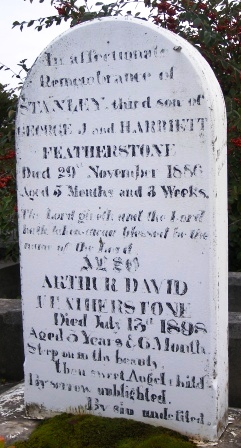 In affectionate
Remembrance of
STANLEY third son of
GEORGE J and HARRIETT
FEATHERSTONE
Died 29th November 1886
Aged 5 Months and 3 Weeks.
The Lord giveth and the Lord
hath taken away blessed be the
name of the Lord
ALSO
ARTHUR DAVID
FEATHERSTONE
Died July 13th 1898
Aged 5 Years & 6 Month.
Sleep on in thy beauty,
Thou sweet Angel child
By sorrow unblighted.
By sin undefiled.